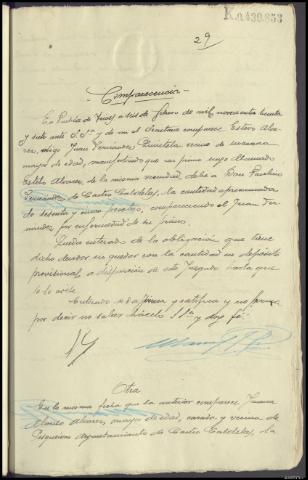 K.0439.853
29
Comparecencia
En Puebla de Trives a de febrero de mil novecientos treinta
y siete ante S.Sª y de mi el Secretario comparece Ester Alva-
rez, digo Juan Fernandez vecino de
mayor de edad, manifestando que su primo
Alvarez de la misma vecindad, debe a Don Paulino
Fernandez de Castro Caldelas, la cantidad aproximada
de sesenta y cinco pesetas, compareciendo el Juan Fer-
nandez por enfermedad de su primo.
Queda enterado de la obligación que tiene
dicho deudor de quedar con la cantidad en depósito
provisional a disposición de este Juzgado hasta que
se le avise.
Enterado se afirma y ratifica y no firma
por decir no saber hácelo SSª y doy fé.
Otra
En la misma fecha que la anterior comparece Juana
Alonso Alvarez, mayor de edad, casada y vecina de
Ayuntamiento de Castro Caldelas, la